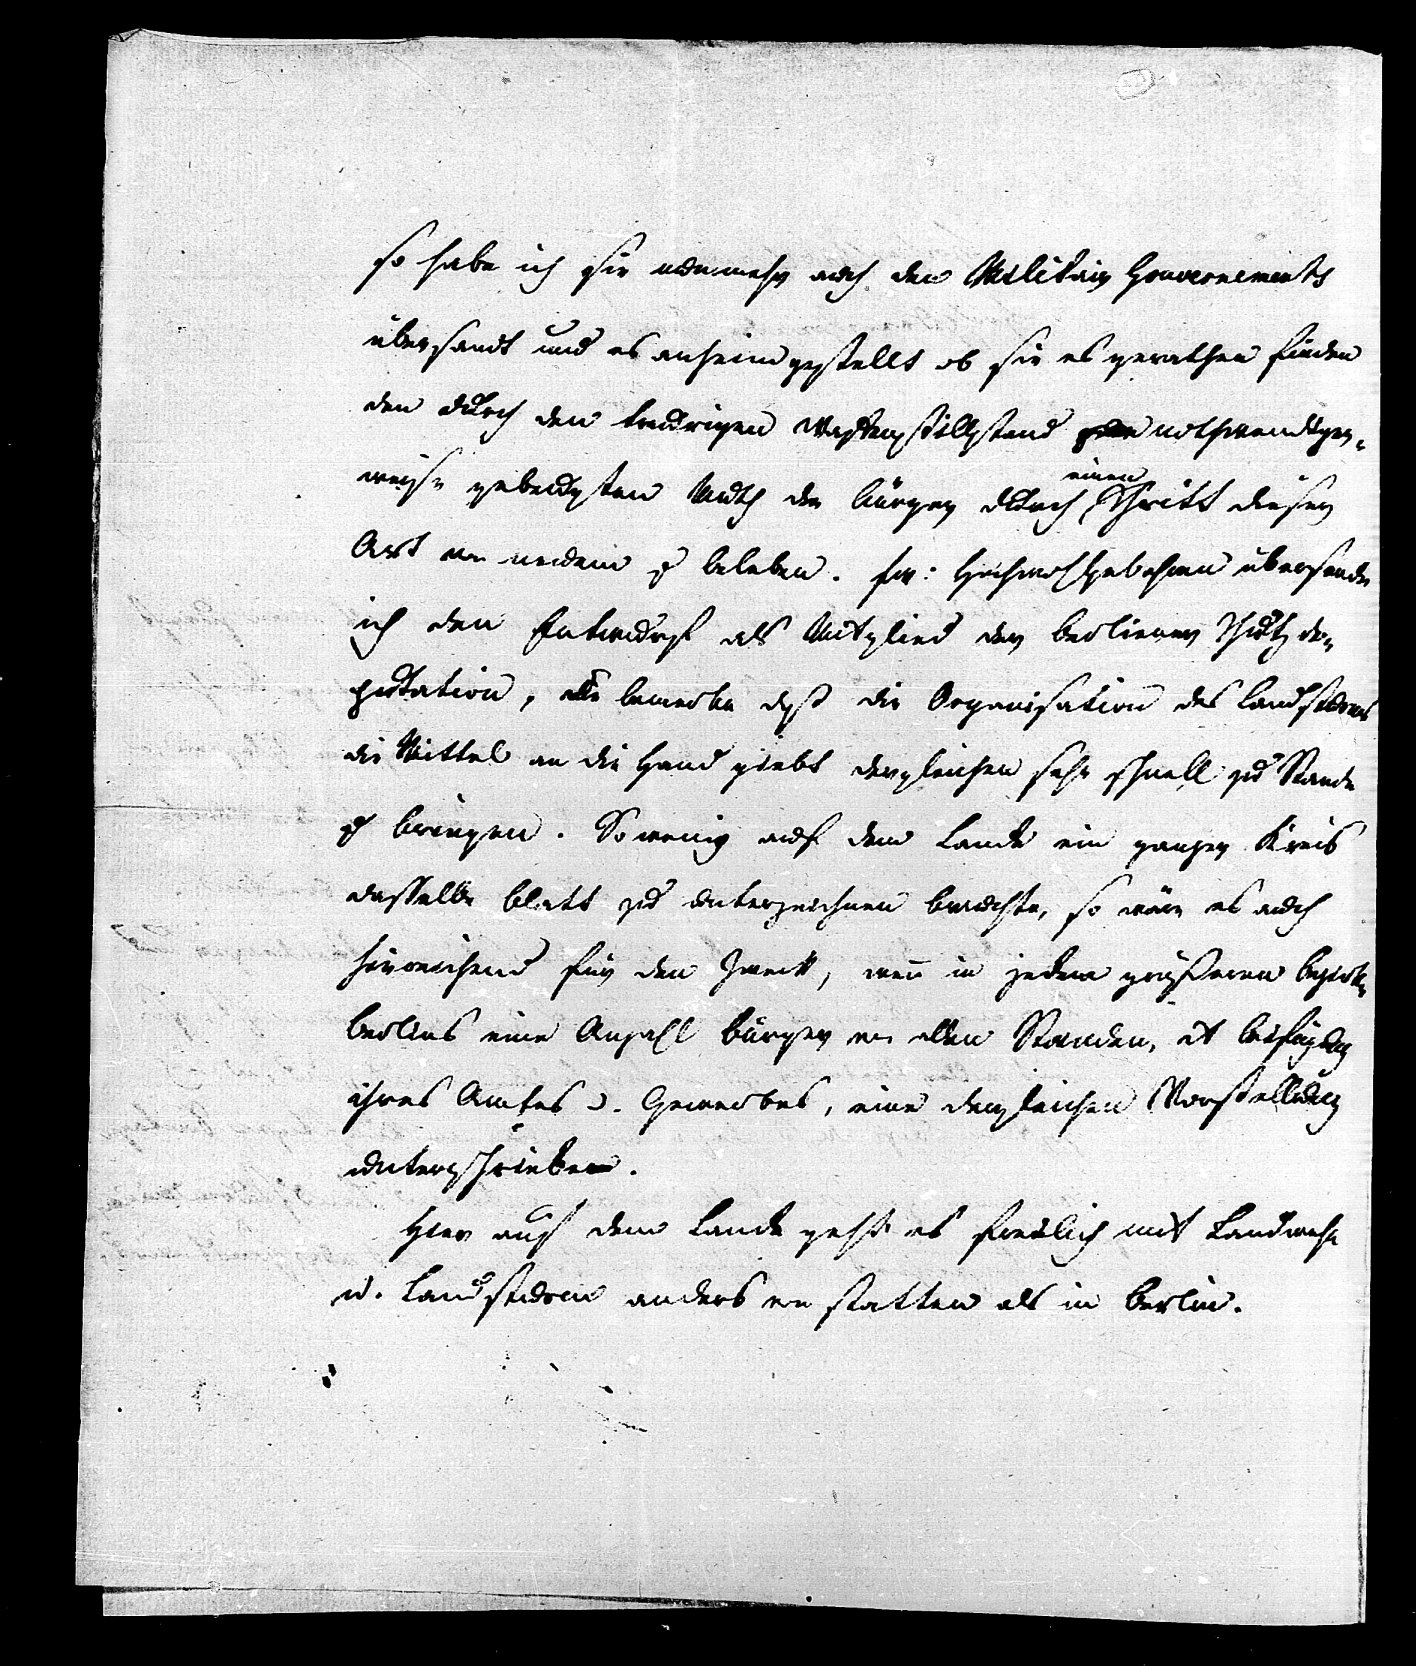 so habe ich sie nunmehr auch den Militair Gouvernements
übersandt und es anheim gestellt ob sie es gerathen finden
den durch den traurigen Waffenstillstand nothwendiger-
weise gebeugten Muth der Bürger durch einen Schritt dieser
Art von neuem zu beleben. Ew: Hochwohlgebohren übersende
ich den Entwurf als Mitglied der Berliner Schutzde-
putation, bemerke daß die Organisation des Landsturms
die Mittel an die Hand giebt dergleichen sehr schnell zu Stande
zu bringen. So wenig auf dem Lande ein ganzer Kreis
dasselbe Blatt zu unterzeichnen brauchte, so wäre es auch
hinreichend für den Zweck, wenn in jedem größeren Bezirk
Berlins eine Anzahl Bürger von allen Standen, mit Beifügung
ihres Amtes u. Gewerbes, eine dergleichen Vorstellung
unterschrieben.
Hier auf dem Lande geht es freilich mit Landwehr
u. Landsturm anders von statten als in Berlin.